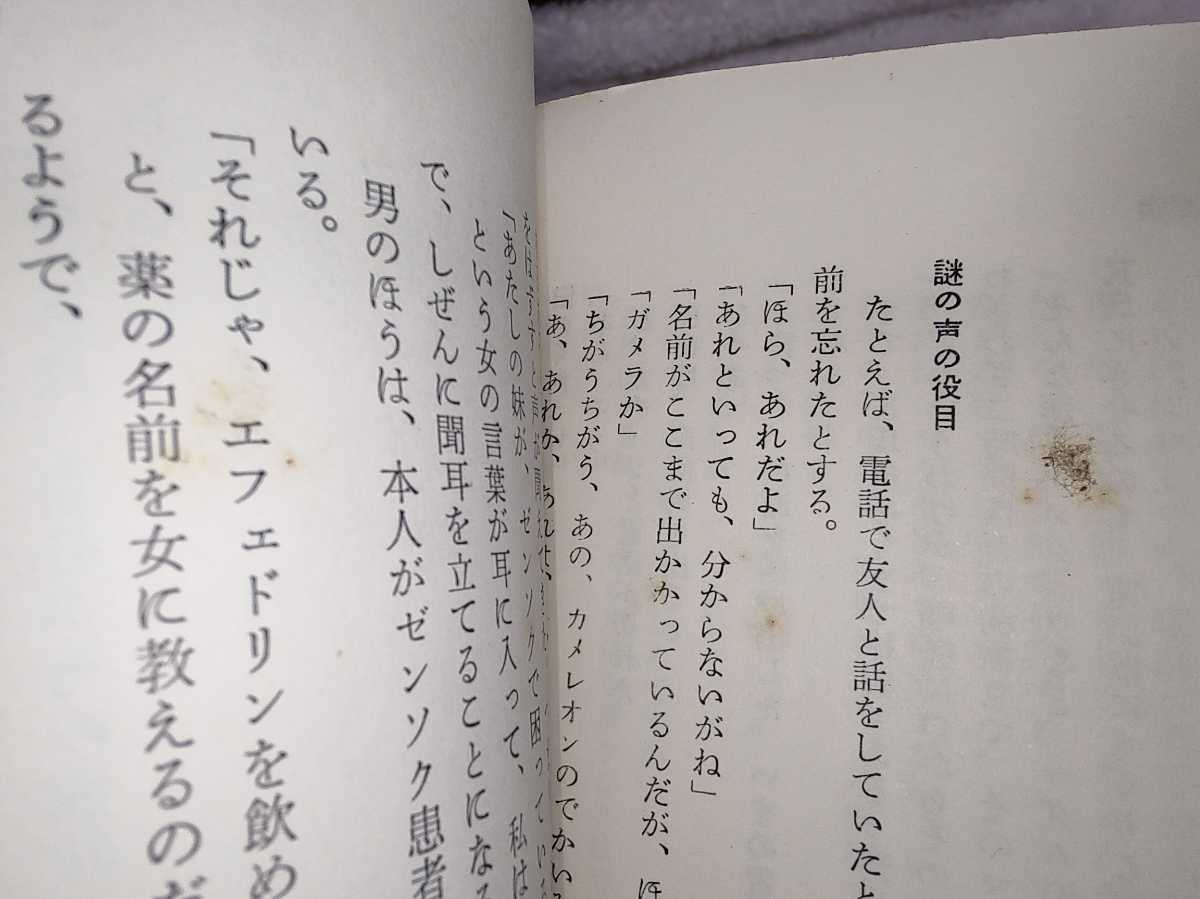 謎の声の役目
たとえば、電話で友人と話をしていたと
前を忘れたとする。
「ほら、あれだよ」
「あれといっても、分からないがね」
「名前がここまで出かかっているんだが、ほ
「ガメラか」
「ちがうちがう、あの、カメレオンのでかい
「あ、あれか、あれは、
「あたしの妹が、ゼンソクで困っている
という女の言葉が耳に入って、私は
で、しぜんに聞耳を立てることになる
男のほうは、本人がゼンソク患者
いる。
「それじゃ、エフェドリンを飲め
と、薬の名前を女に教えるのだ
るようで、